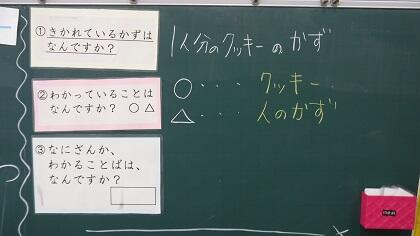 ①きかれているかずは
なんですか？
1人分のクッキーのかず
②わかっていることは
なんですか？ ○ △
○・・・クッキー
△・・・人のかず
③なにざんか、
わかることばは、
なんですか？